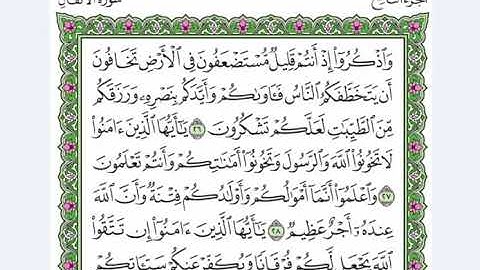 سورة الأنفال
وَٱذْكُرُوٓا۟ إِذْ أَنتُمْ قَلِيلٌ مُّسْتَضْعَفُونَ فِى ٱلْأَرْضِ تَخَافُونَ
أَن يَتَخَطَّفَكُمُ ٱلنَّاسُ فَـَٔاوَىٰكُمْ وَأَيَّدَكُم بِنَصْرِهِۦ وَرَزَقَكُم
مِّنَ ٱلطَّيِّبَٰتِ لَعَلَّكُمْ تَشْكُرُونَ ٢٦ يَٰٓأَيُّهَا ٱلَّذِينَ ءَامَنُوا۟
لَا تَخُونُوا۟ ٱللَّهَ وَٱلرَّسُولَ وَتَخُونُوٓا۟ أَمَٰنَٰتِكُمْ وَأَنتُمْ تَعْلَمُونَ
٢٧ وَٱعْلَمُوٓا۟ أَنَّمَآ أَمْوَٰلُكُمْ وَأَوْلَٰدُكُمْ فِتْنَةٌ وَأَنَّ ٱللَّهَ
عِندَهُۥٓ أَجْرٌ عَظِيمٌ ٢٨ يَٰٓأَيُّهَا ٱلَّذِينَ ءَامَنُوٓا۟ إِن تَتَّقُوا۟
ٱللَّهَ يَجْعَل لَّكُمْ فُرْقَانًا وَيُكَفِّرْ عَنكُمْ سَيِّـَٔاتِكُمْ